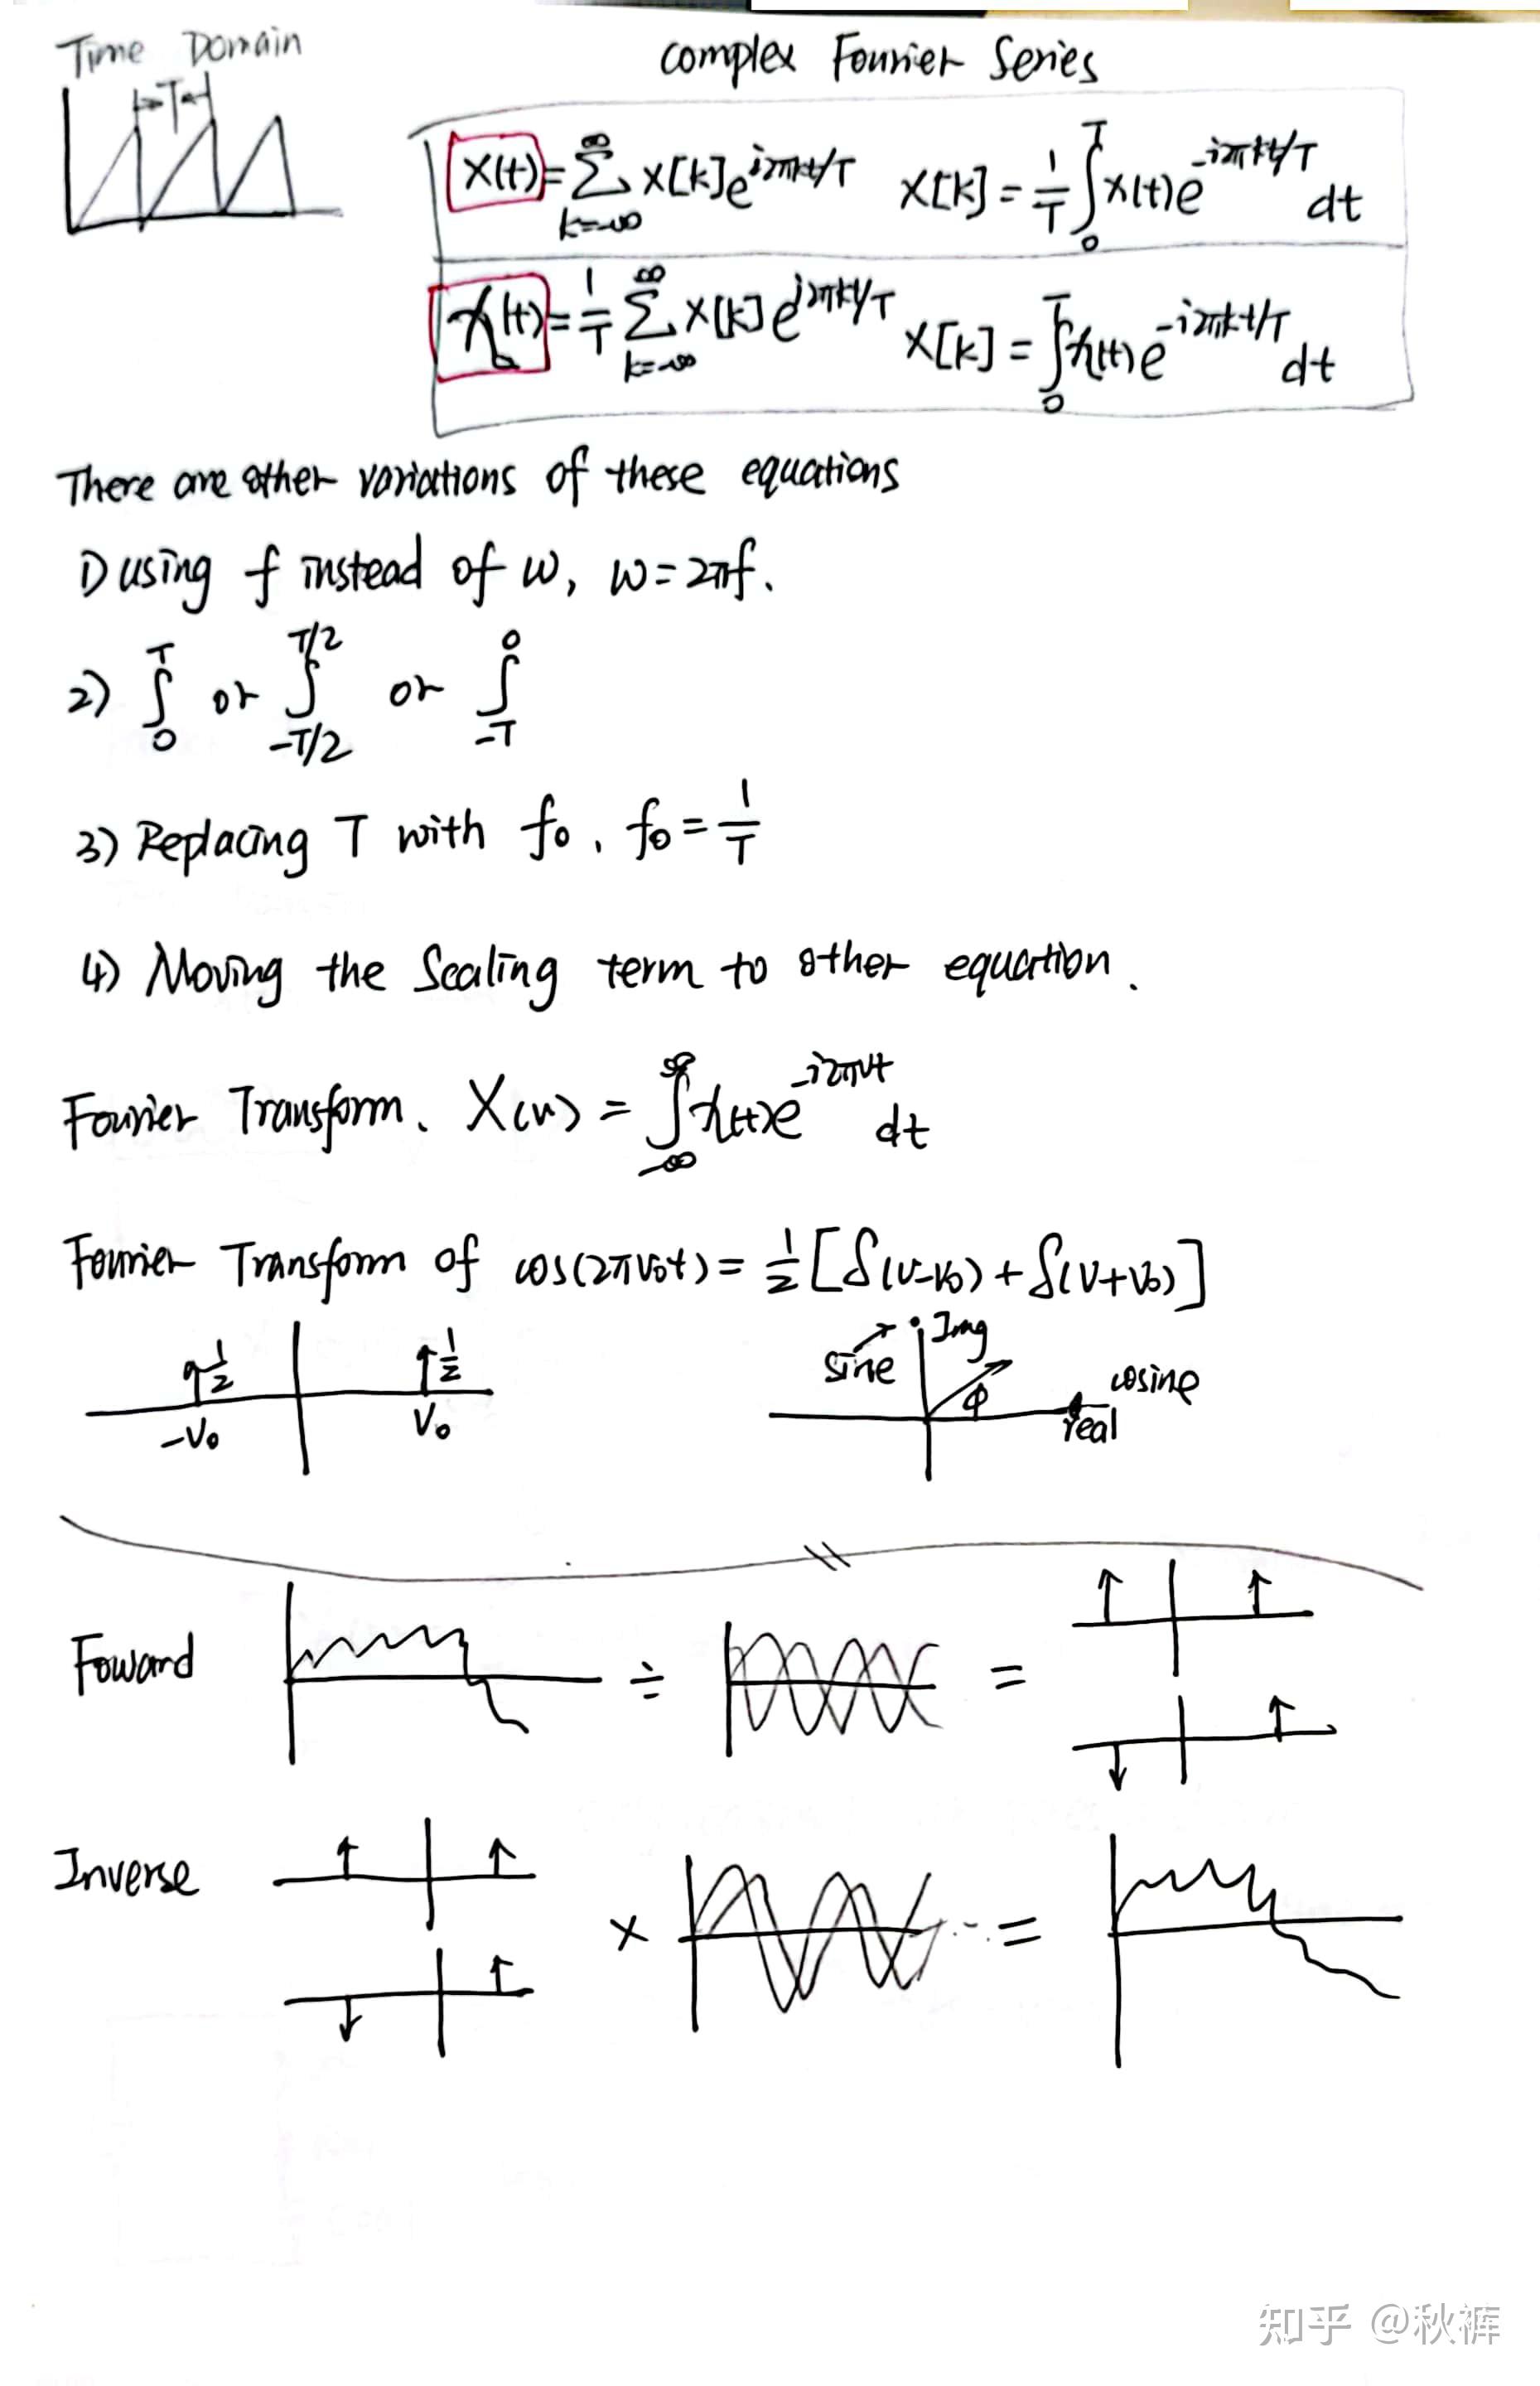 Time Domain
T
Complex Fourier Series
x(t) = ∑_{k=-∞}^{∞} X[k] e^{i2πkt/T}   X[k] = 1/T ∫_0^T x(t) e^{-i2πkt/T} dt
x(t) = 1/T ∑_{k=-∞}^{∞} X[k] e^{i2πkt/T}   X[k] = ∫_0^T x(t) e^{-i2πkt/T} dt
There are other variations of these equations
1) using f instead of w, w = 2πf.
2) ∫_0^T or ∫_{-T/2}^{T/2} or ∫_{-T}^0
3) Replacing T with f₀, f₀ = 1/T
4) Moving the Scaling term to other equation.
Fourier Transform. X(v) = ∫_{-∞}^{∞} x(t) e^{-i2πvt} dt
Fourier Transform of cos(2πv₀t) = 1/2 [δ(v-v₀) + δ(v+v₀)]
1/2 1/2
-v₀ v₀
sine Img
φ cosine
real
Foward ÷ =
Inverse × =
知乎 @秋裤